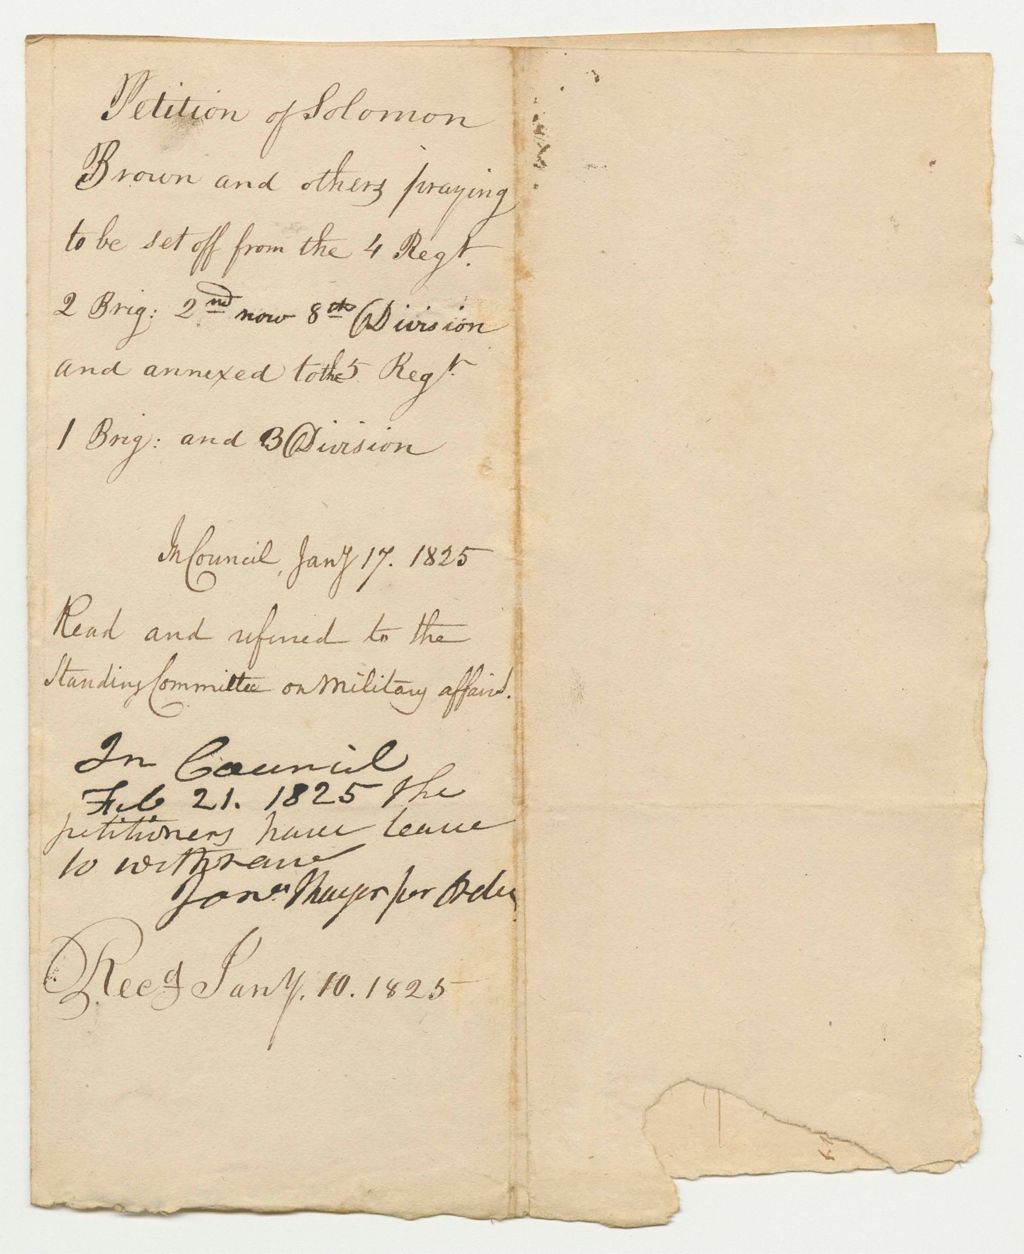 Petition of Solomon
Brown and others praying
to be set off from the 4 Regt.
2 Brig: 2nd now 8th Division
and annexed to the 5 Regt.
1 Brig: and 3 Division
In Council, Jany 17. 1825
Read and referred to the
Standing Committee on Military affairs.
In Council
Feb 21. 1825 the
petitioners have leave
to withdraw
Jona Thayer per Order
Recd Jany. 10. 1825